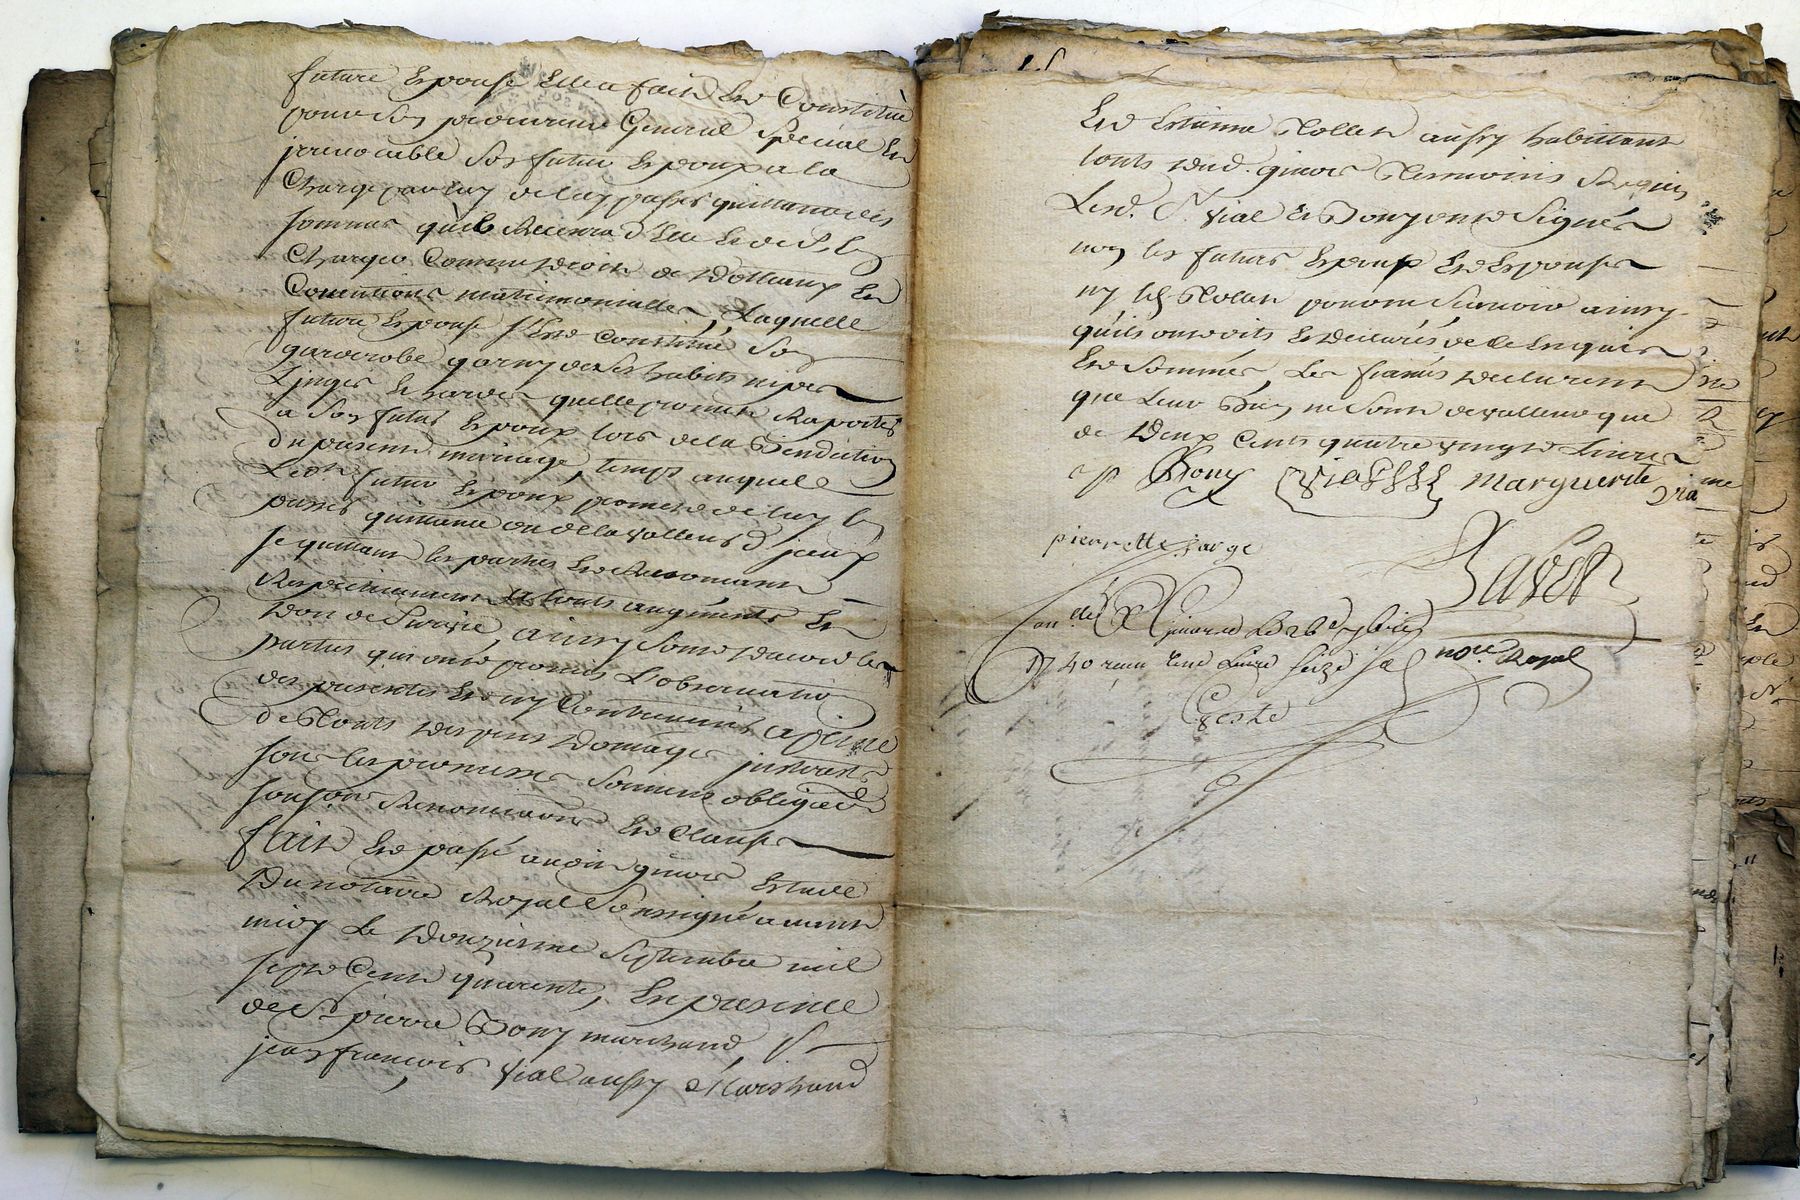 future Epouse Elle a fait Et Constitué
pour son procureur General Special Et
irrevocable Son futur Epoux a la
Charge par luy de luy passer quittance des
sommes qu'il Recevra d'Elle Et de
Charger Comme droits de dottaux Et
Conventions matrimonialles, Laquelle
future Epouse s'Est Constitué Son
garderobe garny de ses habits nipes
Linges Et hardes quelle promet Raporter
a Son futur Epoux lors de la Benediction
du present mariage, temps auquel
Ledt. futur Epoux promet de luy En
passer quittance de la valleur d'jceux
se quittant les parties Et Renoncant
Respectivement a touts augments Et
don de Survie, ainsy Sont d'acord les
parties qui ont promis L'observation
des presentes Et ny Contrevenir a peine
de touts despens domages jnterests
sous les promesses Soumins obligaons
Renonciaons Et Clauses
fait Et passé audit givors Estude
Du notaire Royal Soussigné avant
midy Le douzieme Septembre mil
sept Cent quarente, En presence
de Sr. pierre Bony marchand, Sr.
jean françois Vial aussy Marchand
Et Estienne Mollin aussy habittant
touts dud. givors Temoins Requis
Lesd. Srs. Vial Et Bony ont Signés
non les futurs Epoux Et Espouse
ny led. pour ne Scavoir ainsy
qu'ils ont dits Et declarés de ce Enquis
Et Sommés, Les fiancés declarent
que Leur Bien ne Sont de valleur que
de deux Cents quatre vingt Livres
Bony Vial Marguerite
pierrette farge
Con. lé a givors Le 26e 7bre
1740 reçu une Livre seize s.
Bavet
nore. Royal